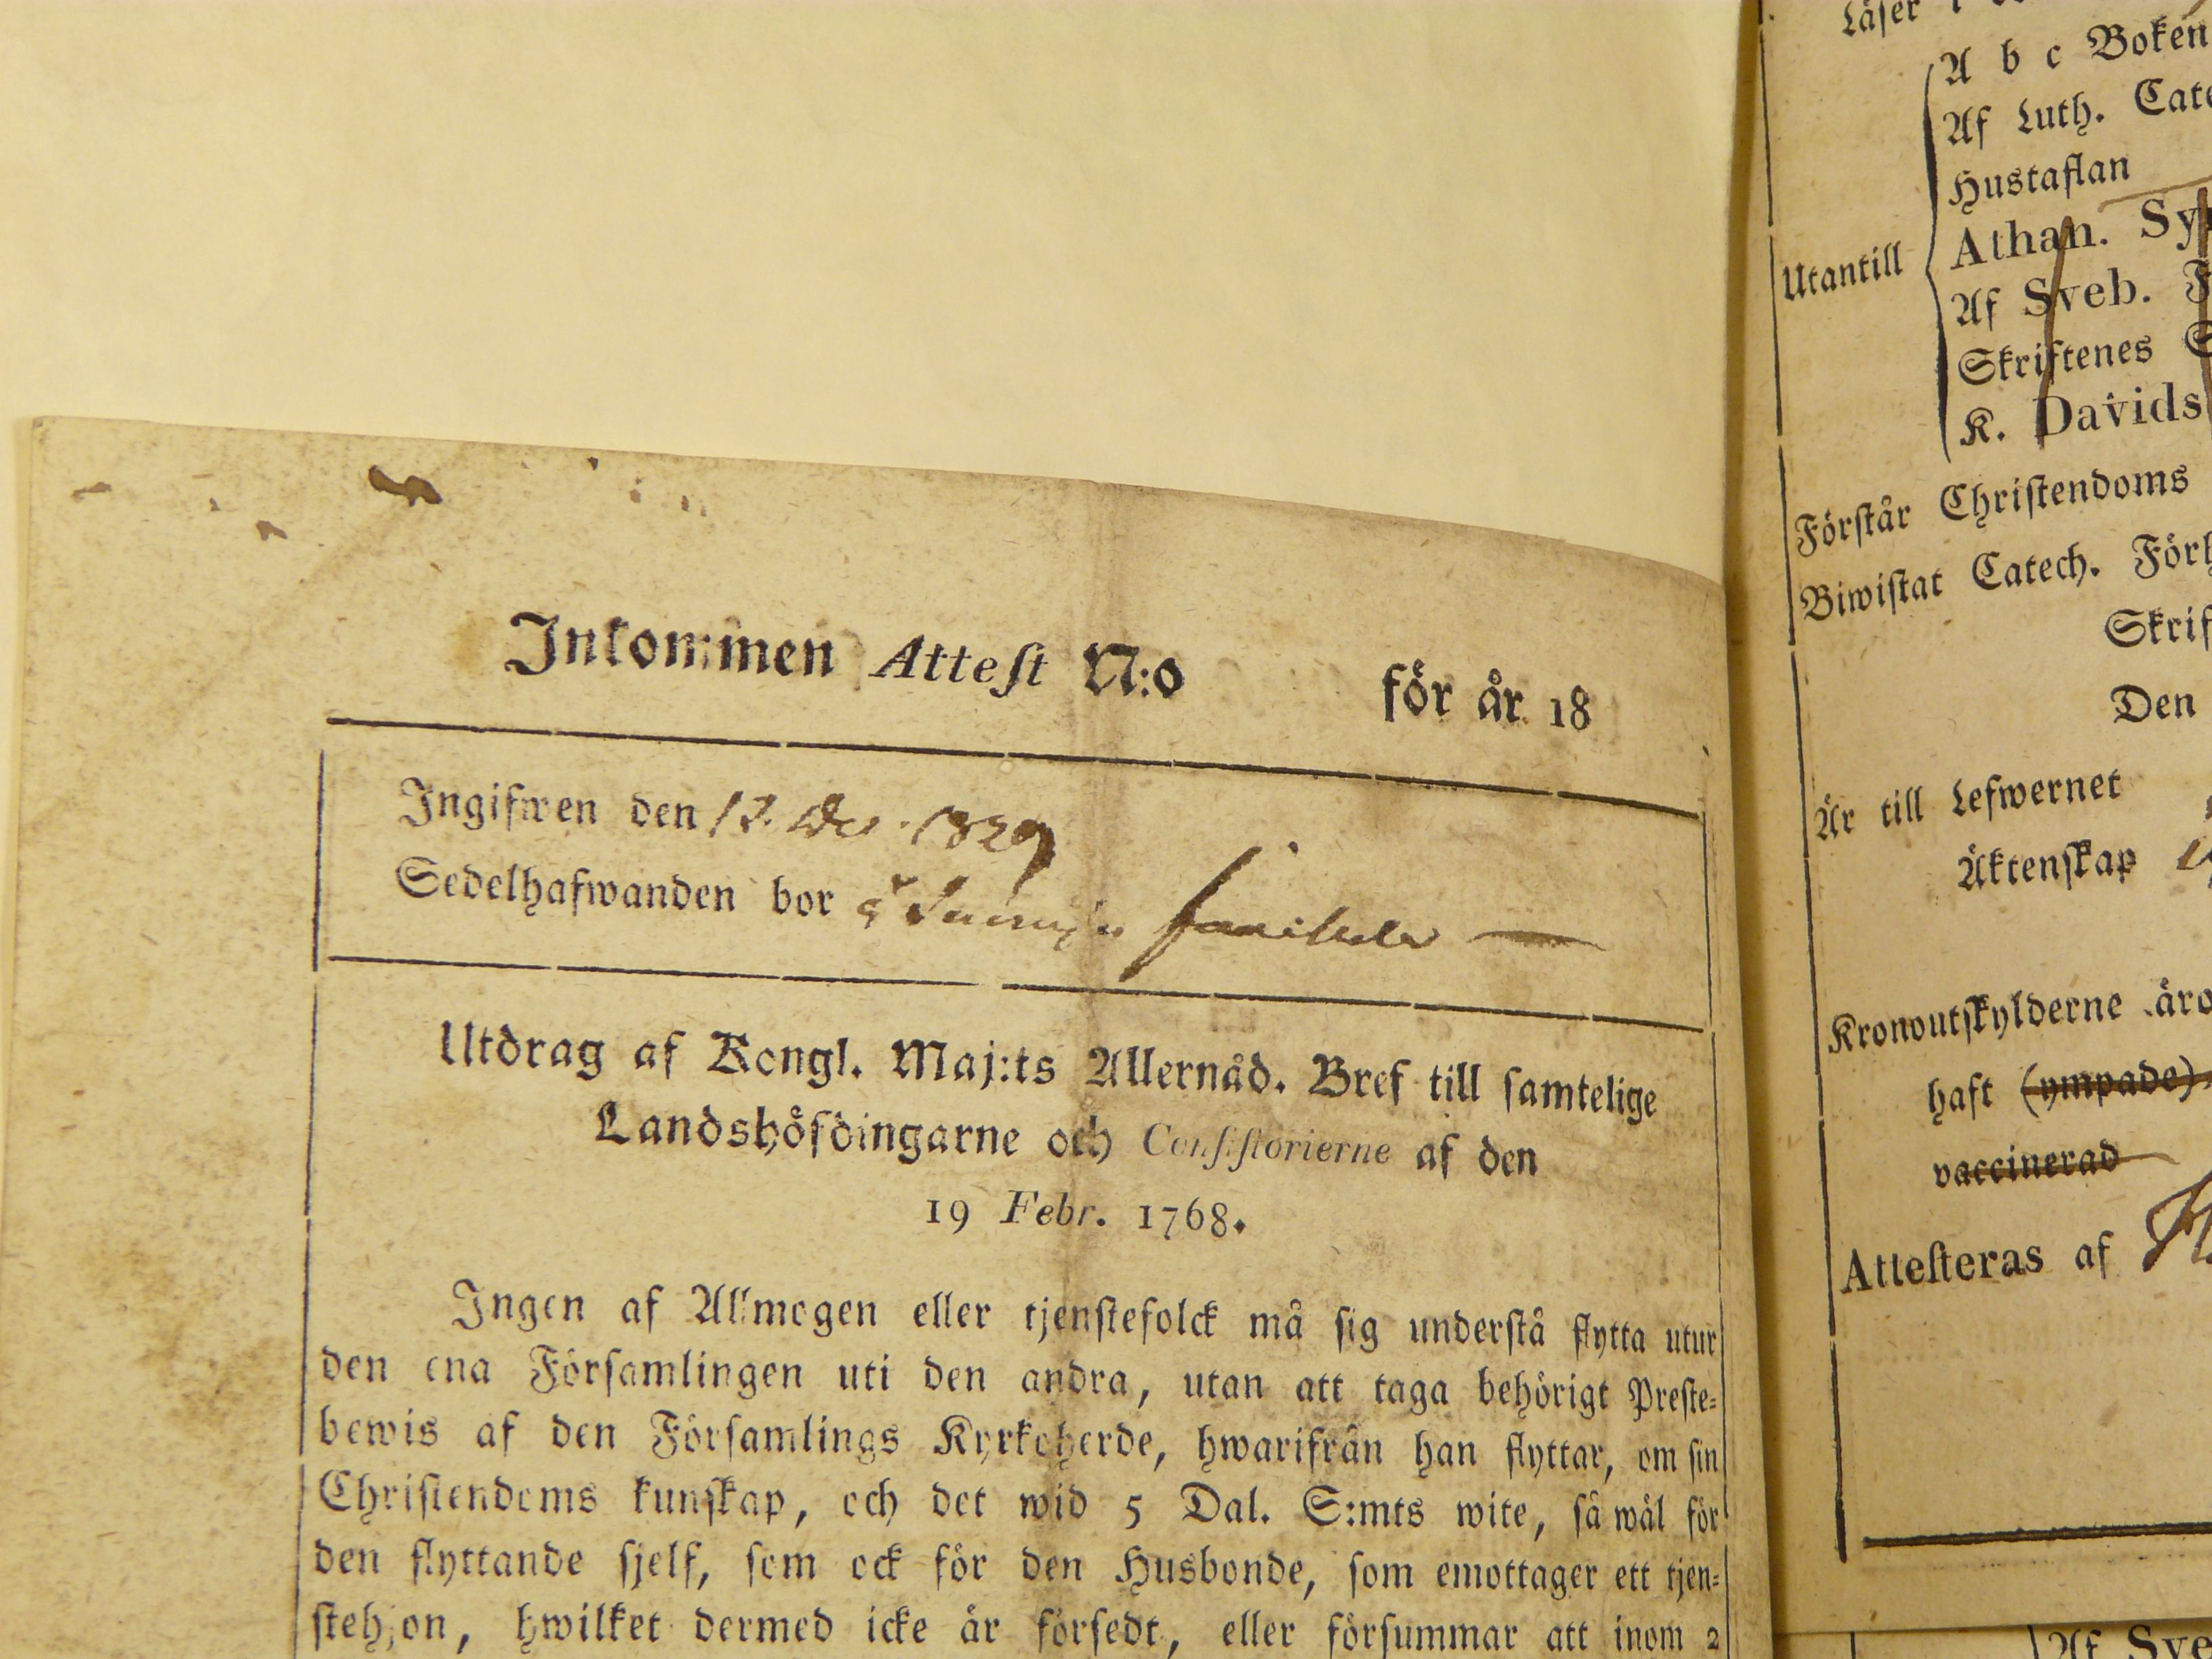 Inkommen Attest N:o för år 18
Ingifwen den 12. Dec. 1829
Sedelhafwanden bor
Utdrag af Kongl. Maj:ts Allernåd. Bref till samtelige
Landshöfdingarne och Consistorierne af den
19 Febr. 1768.
Ingen af Allmogen eller tjenstefolck må sig understå flytta utur
den ena Församlingen uti den andra, utan att taga behörigt Preste-
bewis af den Församlings Kyrkoherde, hwarifrån han flyttar, om sin
Christendoms kunskap, och det wid 5 Dal. S:mts wite, så wäl för
den flyttande sjelf, som ock för den Husbonde, som emottager ett tjen-
stehjon, hwilket dermed icke är försedt, eller försummar att inom 2
Läser
Utantill
A b c Boken
Af Luth. Cate
Hustaflan
Athan. Sy
Af Sveb. F
Skriftenes
K. Davids
Förstår Christendoms
Biwistat Catech. Förh
Skrif
Den
Är till Lefwernet
Äktenskap
Kronoutskylderne äro
haft (ympade)
vaccinerad
Attesteras af
Af Sve